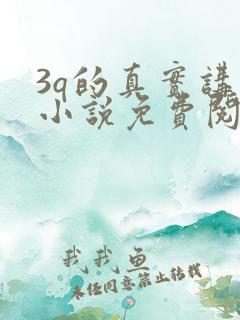 3q的真實講
小說免費閱
我我魚
未經同意禁止轉載